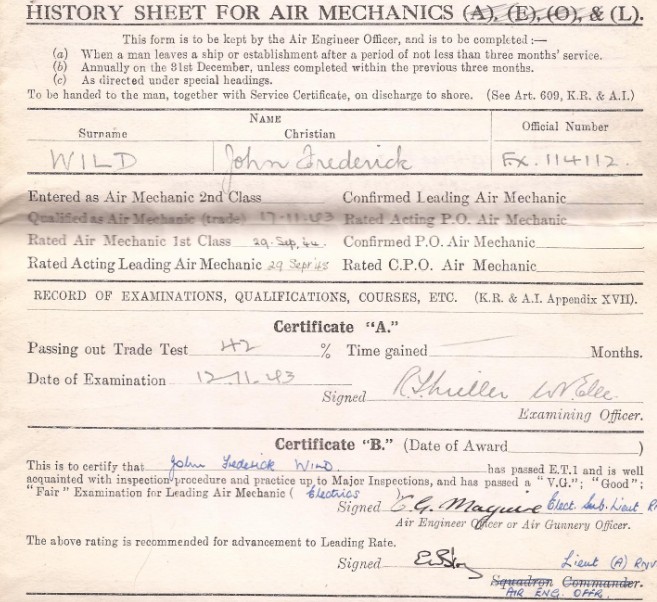 HISTORY SHEET FOR AIR MECHANICS (A), (E), (O), & (L).
This form is to be kept by the Air Engineer Officer, and is to be completed :—
(a) When a man leaves a ship or establishment after a period of not less than three months' service.
(b) Annually on the 31st December, unless completed within the previous three months.
(c) As directed under special headings.
To be handed to the man, together with Service Certificate, on discharge to shore. (See Art. 609, K.R. & A.I.)
NAME
Surname Christian Official Number
WILD John Frederick FX. 114112.
Entered as Air Mechanic 2nd Class Confirmed Leading Air Mechanic
Qualified as Air Mechanic (trade) 17-11-43 Rated Acting P.O. Air Mechanic
Rated Air Mechanic 1st Class 29. Sep. 44. Confirmed P.O. Air Mechanic
Rated Acting Leading Air Mechanic 29 Sept 45 Rated C.P.O. Air Mechanic
RECORD OF EXAMINATIONS, QUALIFICATIONS, COURSES, ETC. (K.R. & A.I. Appendix XVII).
Certificate "A."
Passing out Trade Test 42 % Time gained — Months.
Date of Examination 12.11.43
Signed
Examining Officer.
Certificate "B." (Date of Award )
This is to certify that John Frederick WILD. has passed E.T.1 and is well
acquainted with inspection procedure and practice up to Major Inspections, and has passed a "V.G."; "Good";
"Fair" Examination for Leading Air Mechanic ( Electrics )
Signed E.G. Maguire Elect. Sub. Lieut R
Air Engineer Officer or Air Gunnery Officer.
The above rating is recommended for advancement to Leading Rate.
Signed Lieut (A) RNV
Squadron Commander.
AIR ENG. OFFR.